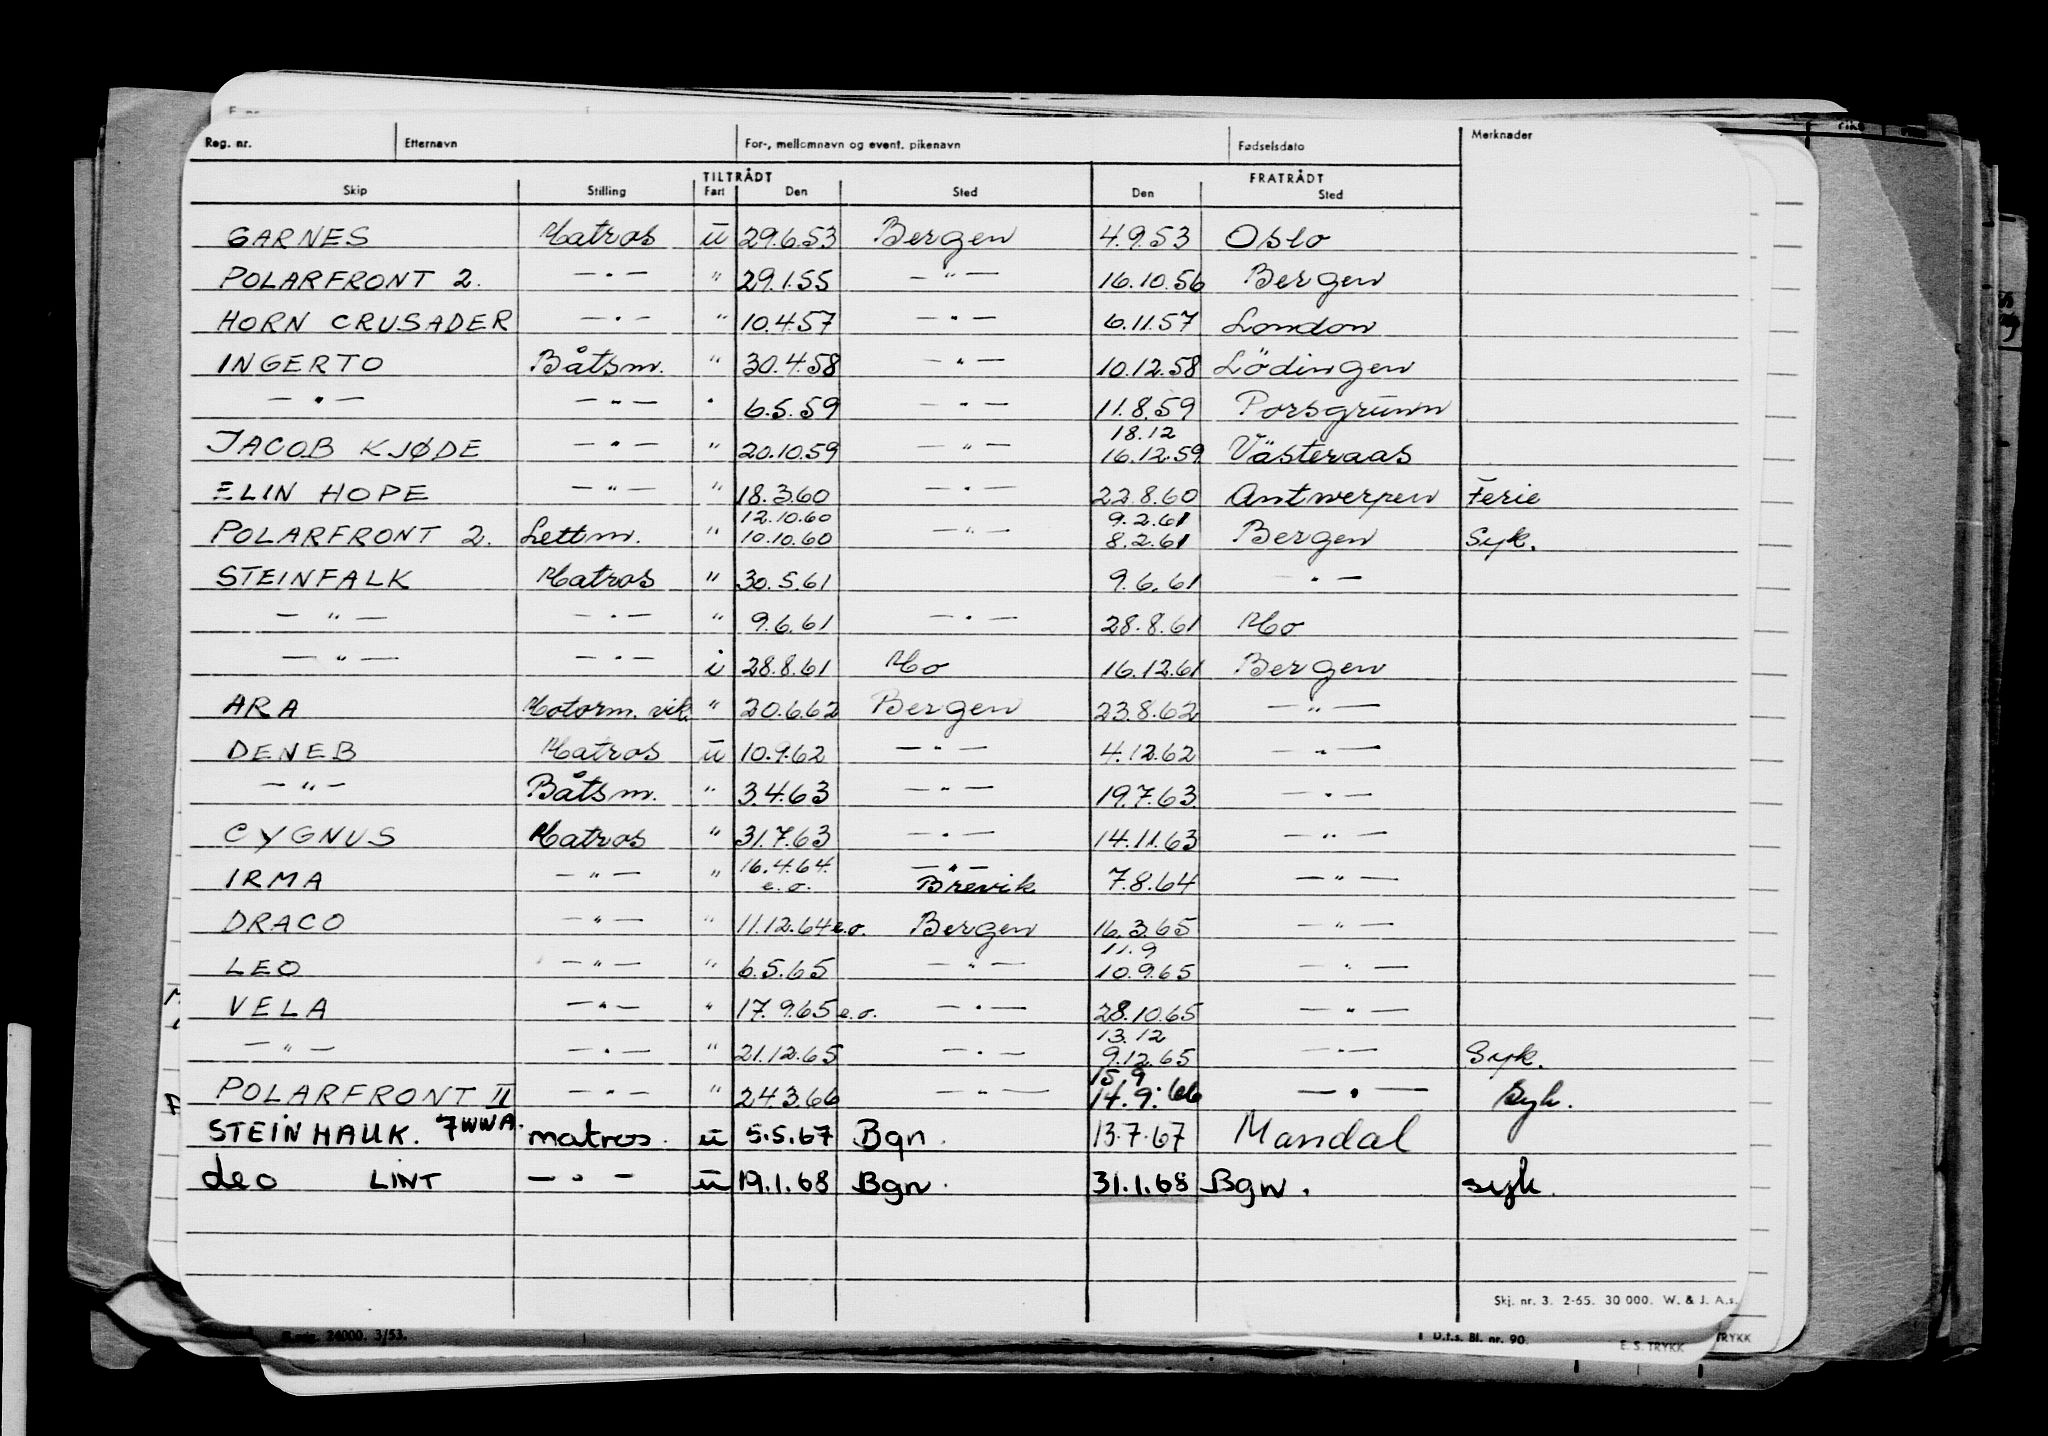 Reg. nr. Etternavn For-, mellomnavn og event. pikenavn Fødselsdato Merknader
TILTRÅDT FRATRÅDT
Skip Stilling Fart Den Sted Den Sted
GARNES Matros ū 29.6.53 Bergen 4.9.53 Oslo
POLARFRONT 2. — " — " 29.1.55 — " — 16.10.56 Bergen
HORN CRUSADER — " — " 10.4.57 — " — 6.11.57 London
INGERTO Båtsm. " 30.4.58 — " — 10.12.58 Lödingen
— " — — " — " 6.5.59 — " — 11.8.59 Porsgrūnn
18.12
JACOB KJØDE — " — " 20.10.59 — " — 16.12.59 Västeraas
ELIN HOPE — " — " 18.3.60 — " — 22.8.60 Antwerpen Ferie
12.10.60 9.2.61
POLARFRONT 2. Lettm. " 10.10.60 — " — 8.2.61 Bergen Syk.
STEINFALK Matros " 30.5.61 9.6.61 — " —
— " — — " — " 9.6.61 — " — 28.8.61 Mo
— " — — " — i 28.8.61 Mo 16.12.61 Bergen
ARA Motorm. vik. " 20.6.62 Bergen 23.8.62 — " —
DENEB Matros ū 10.9.62 — " — 4.12.62 — " —
— " — Båtsm. " 3.4.63 — " — 19.7.63 — " —
CYGNUS Matros " 31.7.63 — " — 14.11.63 — " —
16.4.64. — " —
IRMA — " — " e.o. Brevik 7.8.64 — " —
DRACO — " — " 11.12.64 e.o. Bergen 16.3.65 — " —
11.9
LEO — " — " 6.5.65 — " — 10.9.65 — " —
VELA — " — " 17.9.65 e.o. — " — 28.10.65 — " —
13.12
— " — — " — " 21.12.65 — " — 9.12.65 — " — Syk.
15.9
POLARFRONT II — " — " 24.3.66 — " — 14.9.66 — " — Syk.
STEINHAUK. 7WWA. matros. ū 5.5.67 Bgn. 13.7.67 Mandal
Leo LINT — " — ū 19.1.68 Bgn. 31.1.68 Bgn. syk.
Skj. nr. 3. 2-65. 30 000. W. & J. A.s.
24000. 3/53. D.f.s. Bl. nr. 90. E. S. TRYKK TRYKK